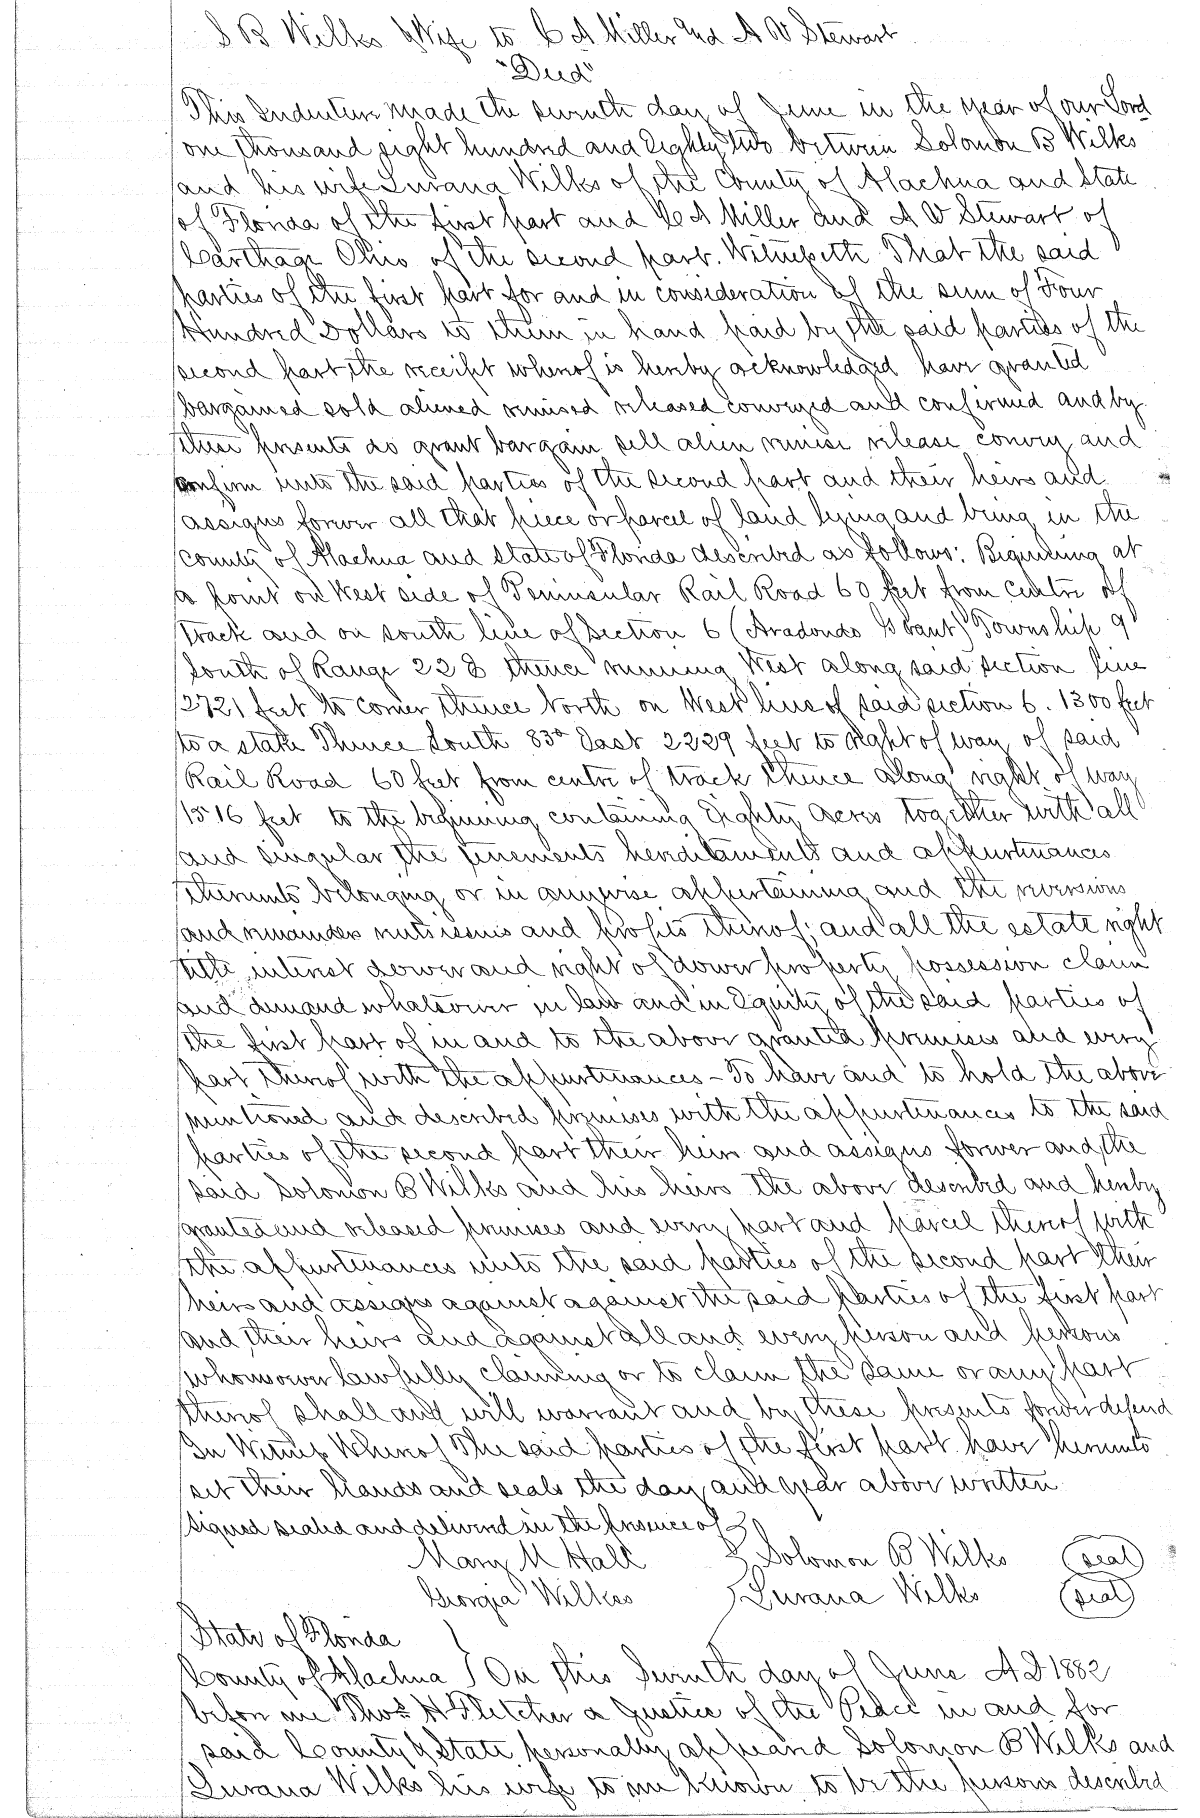 S B Wilks & Wife to C A Miller and A V Stewart
"Deed"
This Indenture made the seventh day of June in the year of our Lord
one thousand eight hundred and Eighty two between Solomon B Wilks
and his wife Lurana Wilks of the County of Alachua and State
of Florida of the first part and C A Miller and A V Stewart of
Carthage Ohio of the second part. Witnesseth That the said
parties of the first part for and in consideration of the sum of Four
Hundred Dollars to them in hand paid by the said parties of the
second part the receipt whereof is hereby acknowledged have granted
bargained sold aliened remised released conveyed and confirmed and by
these presents do grant bargain sell alien remise release convey and
confirm unto the said parties of the second part and their heirs and
assigns forever all that piece or parcel of land lying and being in the
County of Alachua and State of Florida described as follows: Beginning at
a point on West side of Peninsular Rail Road 60 feet from Centre of
track and on south line of Section 6 (Aradondo Grant) Township 9
South of Range 22 E thence running West along said section line
2721 feet to corner thence North on West line of said section 6. 1300 feet
to a stake Thence South 83° East 2229 feet to right of way of said
Rail Road 60 feet from centre of track thence along right of way
1516 feet to the beginning containing Eighty acres together with all
and singular the tenements hereditaments and appurtenances
thereunto belonging or in anywise appertaining and the reversions
and remainders rents issues and profits thereof; and all the estate right
title interest dower and right of dower property possession claim
and demand whatsoever in law and in Equity of the said parties of
the first part of in and to the above granted premises and every
part thereof with the appurtenances - To have and to hold the above
mentioned and described premises with the appurtenances to the said
parties of the second part their heirs and assigns forever and the
said Solomon B Wilks and his heirs the above described and hereby
granted and released premises and every part and parcel thereof with
the appurtenances unto the said parties of the second part their
heirs and assigns against against the said parties of the first part
and their heirs and against all and every person and persons
whomsoever lawfully claiming or to claim the same or any part
thereof shall and will warrant and by these presents forever defend
In Witness Whereof The said parties of the first part have hereunto
set their hands and seals the day and year above written
Signed sealed and delivered in the presence of
Mary M Hall Solomon B Wilks (seal)
Georgia Wilkes Lurana Wilks (seal)
State of Florida
County of Alachua } On this Seventh day of June A D 1882
before me Thos H Fletcher a Justice of the Peace in and for
said County & State personally appeared Solomon B Wilks and
Lurana Wilks his wife to me known to be the persons described